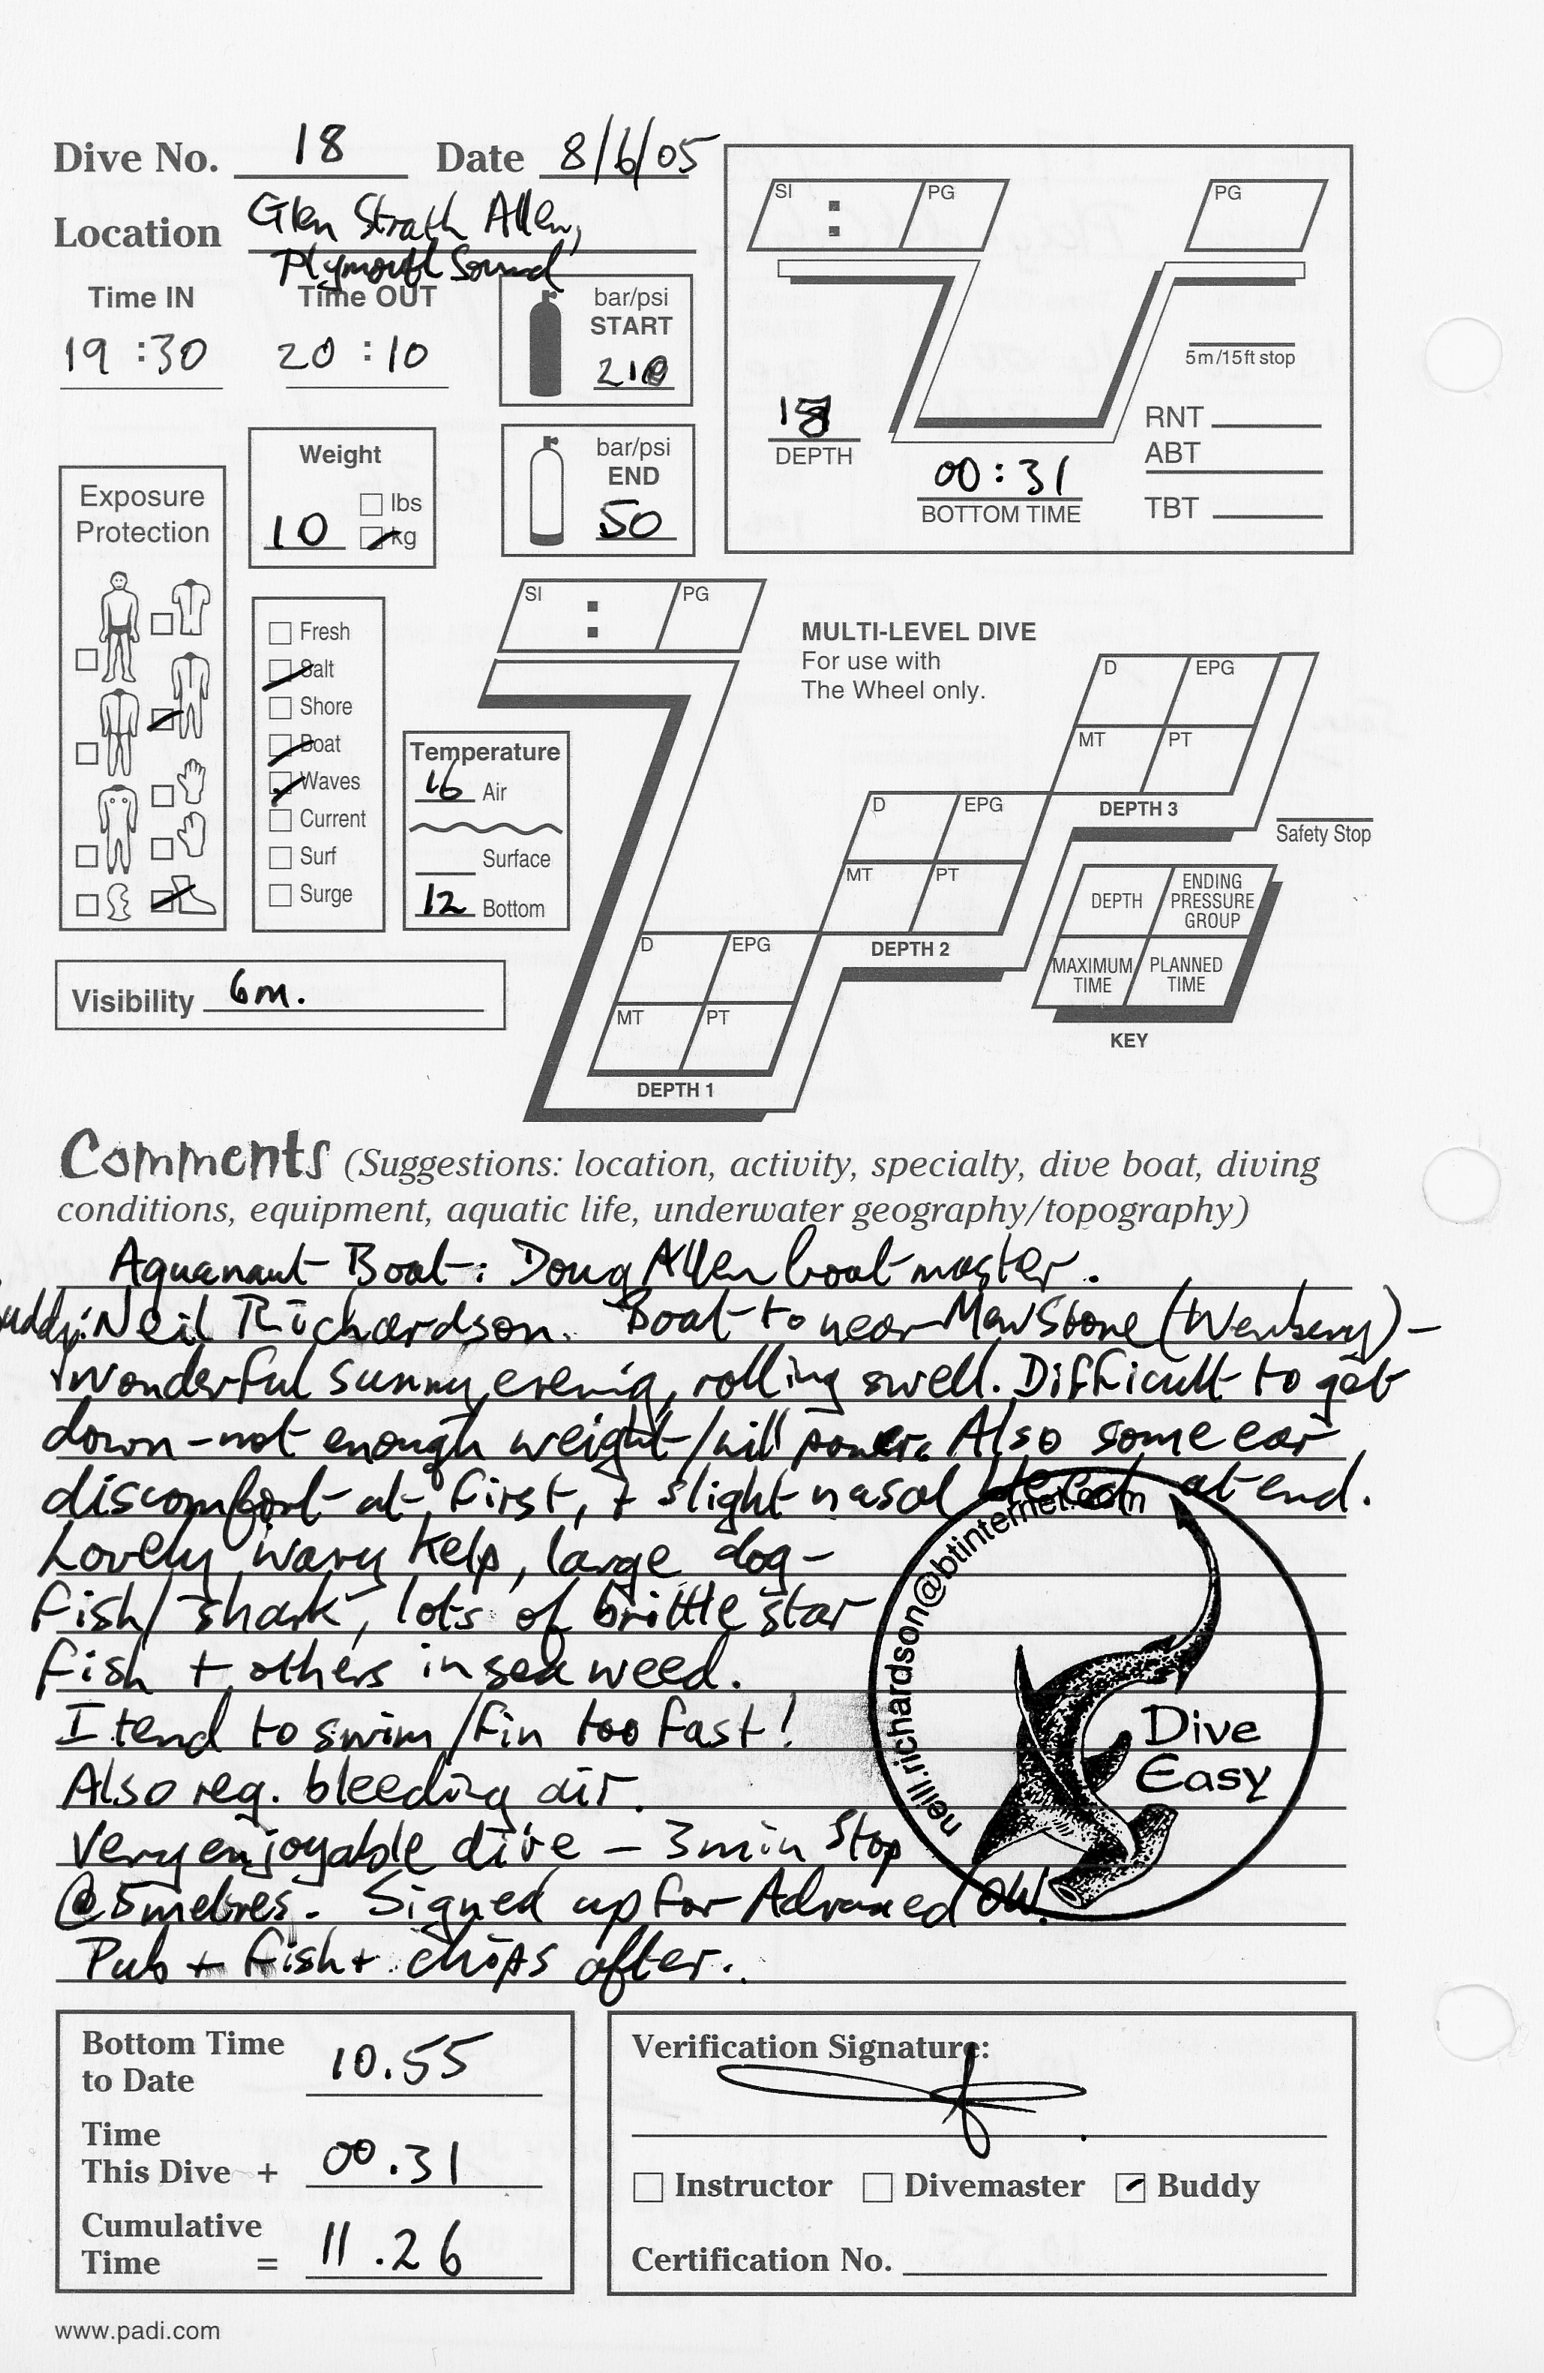 Dive No. 18 Date 8/6/05
Location Glen Strath Allen,
Plymouth Sound
Time IN Time OUT
19:30 20:10
bar/psi
START
210
bar/psi
END
50
Weight
lbs
10 kg
Exposure
Protection
Fresh
Salt
Shore
Boat
Waves
Current
Surf
Surge
Temperature
16 Air
Surface
12 Bottom
Visibility 6m.
SI : PG
PG
5m/15ft stop
18
DEPTH
00:31
BOTTOM TIME
RNT
ABT
TBT
SI : PG
MULTI-LEVEL DIVE
For use with
The Wheel only.
D EPG
MT PT
DEPTH 1
D EPG
MT PT
DEPTH 2
D EPG
MT PT
DEPTH 3
Safety Stop
DEPTH
ENDING
PRESSURE
GROUP
MAXIMUM
TIME
PLANNED
TIME
KEY
Comments (Suggestions: location, activity, specialty, dive boat, diving
conditions, equipment, aquatic life, underwater geography/topography)
Aquanaut Boat: Doug Allen boat master.
Buddy: Neil Richardson. Boat to near MewStone (Wembury) -
Wonderful sunny evenig, rolling swell. Difficult to get
down - not enough weight/will power. Also some ear
discomfort at first, + slight nasal bleed at end.
Lovely wavy kelp, large dog-
fish/"shark", lots of brittle star
fish + others in sea weed.
I tend to swim/fin too fast!
Also reg. bleeding air.
Very enjoyable dive - 3 min stop
@ 5 metres. Signed up for Advanced OW.
Pub + fish + chips after.
neill.richardson@btinternet.com
Dive
Easy
Bottom Time
to Date 10.55
Time
This Dive + 00.31
Cumulative
Time = 11.26
Verification Signature:
Instructor Divemaster Buddy
Certification No.
www.padi.com